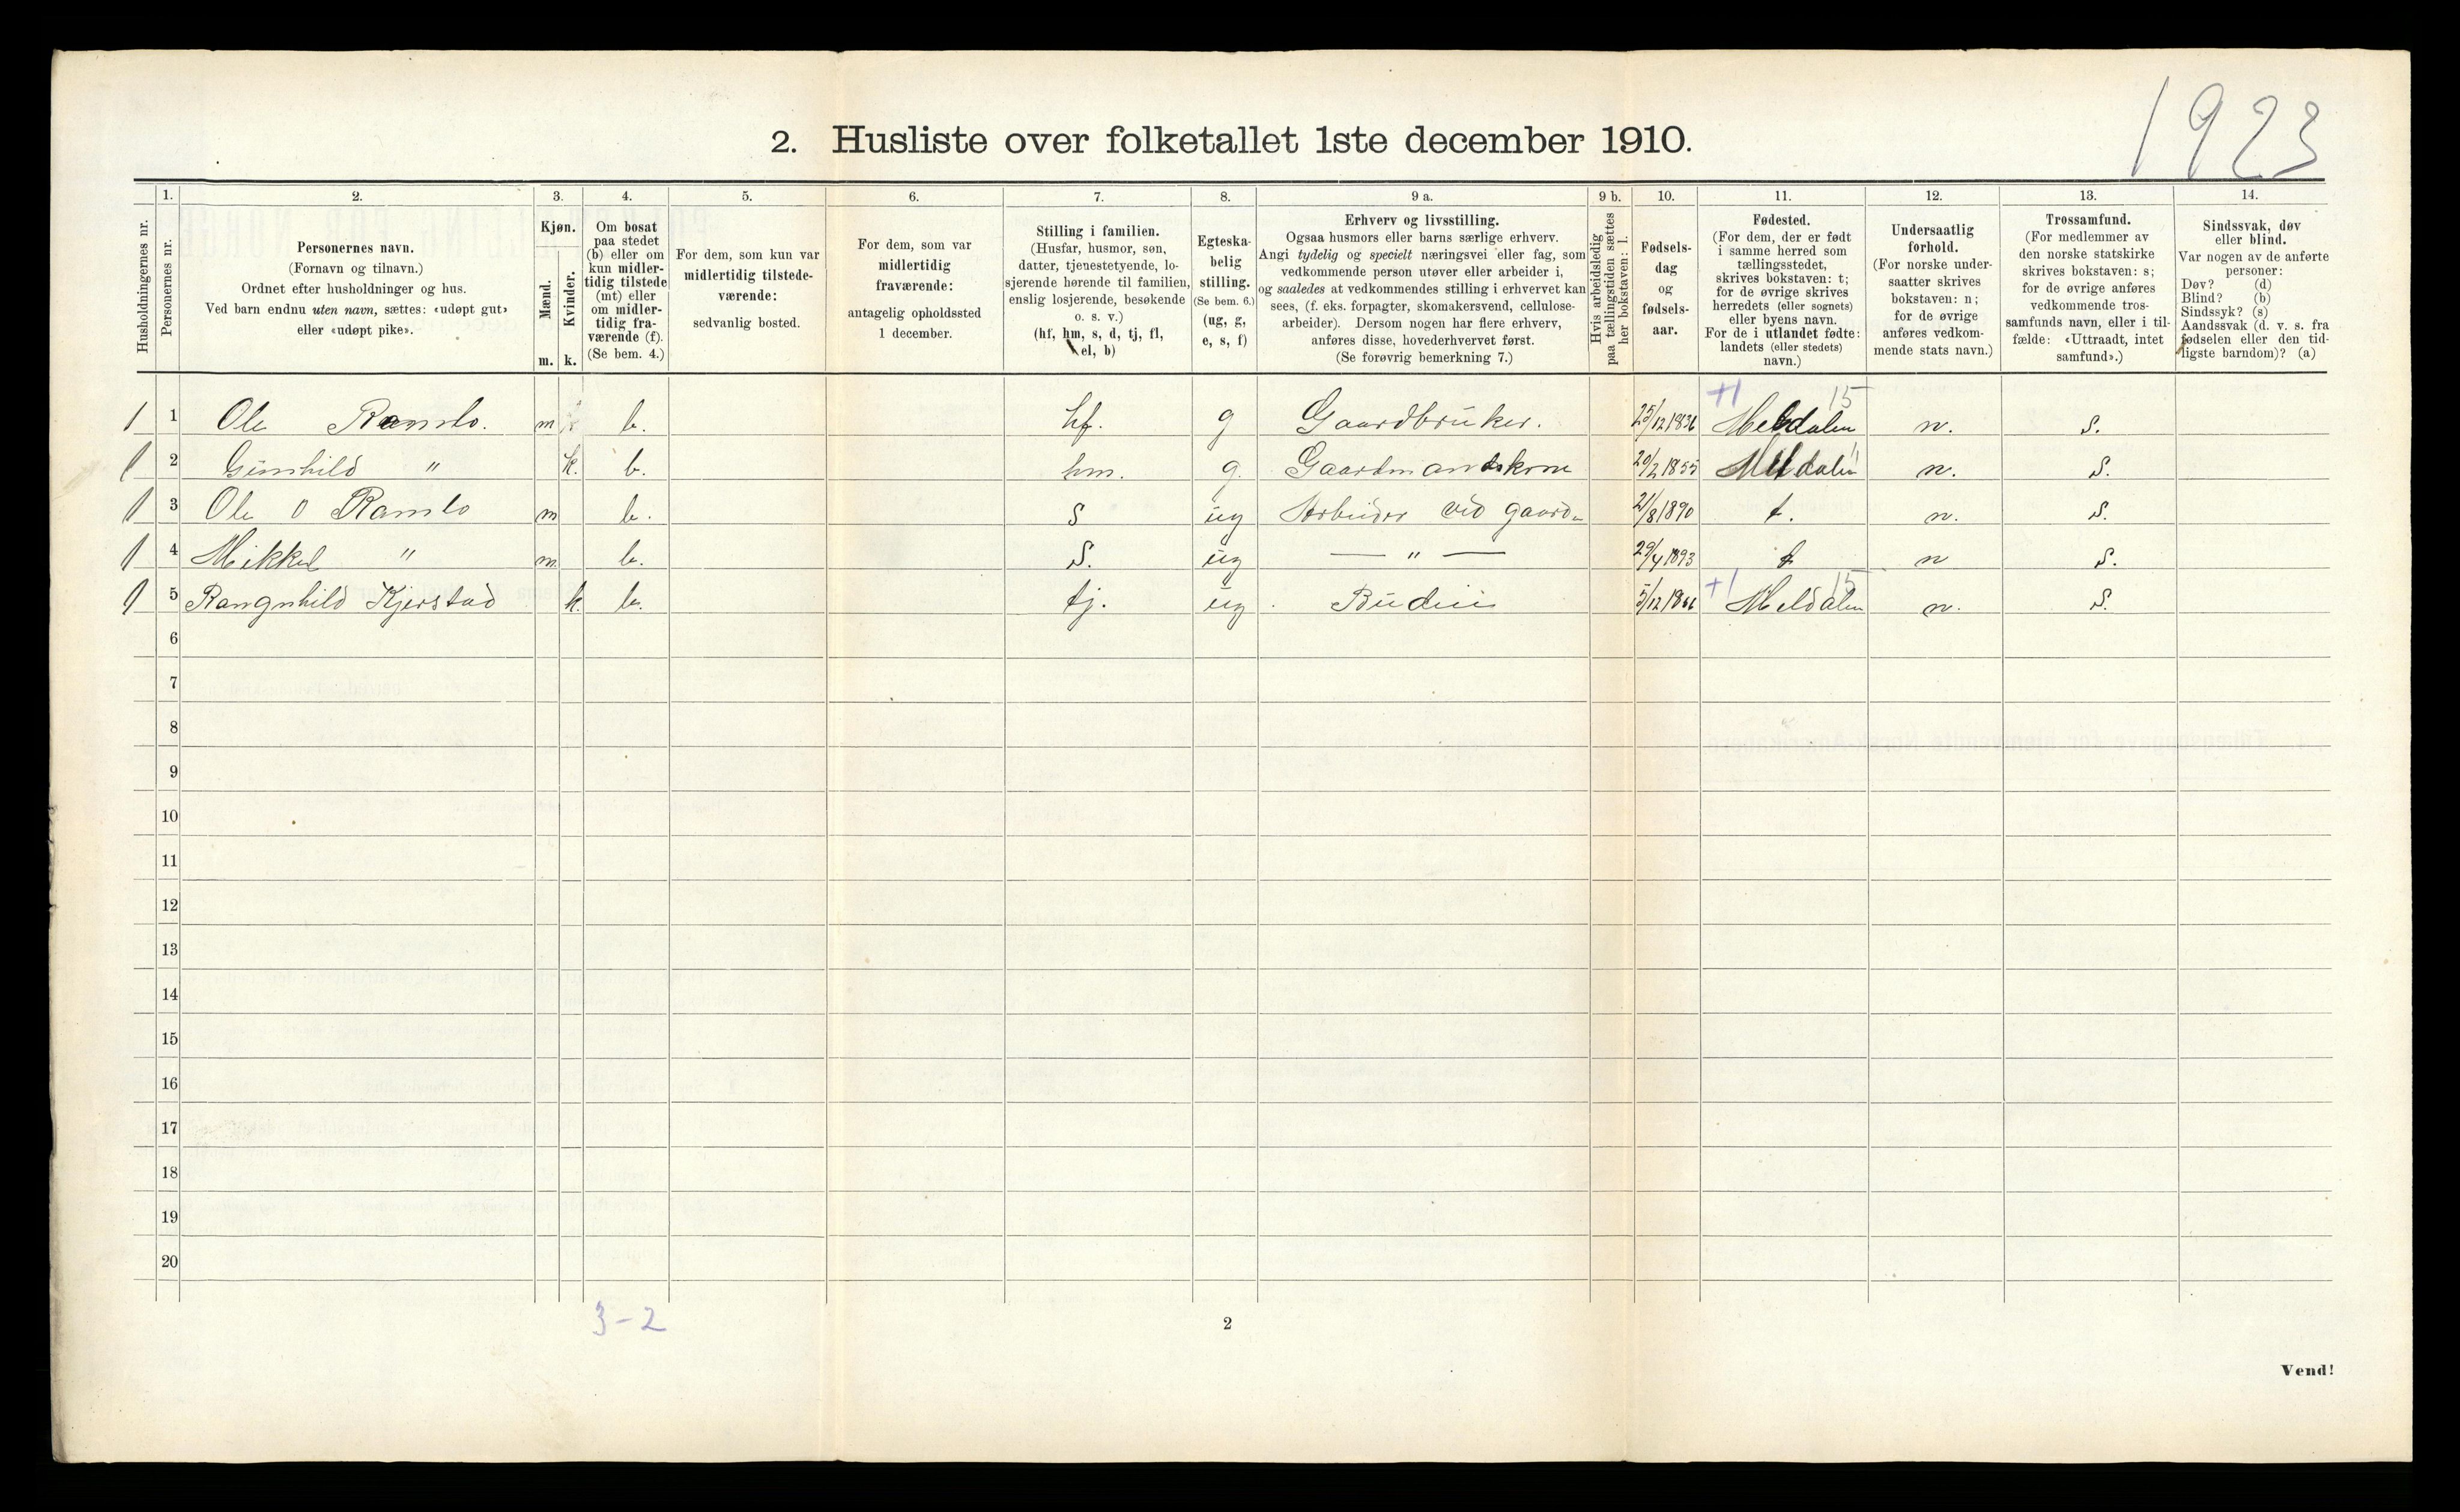 1923
2. Husliste over folketallet 1ste december 1910.
Husholdningernes nr.
1. Personernes nr.
2. Personernes navn. (Fornavn og tilnavn.) Ordnet efter husholdninger og hus. Ved barn endnu uten navn, sættes: «udøpt gut» eller «udøpt pike».
3. Kjøn. Mænd. m. Kvinder. k.
4. Om bosat paa stedet (b) eller om kun midlertidig tilstede (mt) eller om midlertidig fraværende (f). (Se bem. 4.)
5. For dem, som kun var midlertidig tilstedeværende: sedvanlig bosted.
6. For dem, som var midlertidig fraværende: antagelig opholdssted 1 december.
7. Stilling i familien. (Husfar, husmor, søn, datter, tjenestetyende, losjerende hørende til familien, enslig losjerende, besøkende o. s. v.) (hf, hm, s, d, tj, fl, el, b)
8. Egteskabelig stilling. (Se bem. 6.) (ug, g, e, s, f)
9 a. Erhverv og livsstilling. Ogsaa husmors eller barns særlige erhverv. Angi tydelig og specielt næringsvei eller fag, som vedkommende person utøver eller arbeider i, og saaledes at vedkommendes stilling i erhvervet kan sees, (f. eks. forpagter, skomakersvend, cellulosearbeider). Dersom nogen har flere erhverv, anføres disse, hovederhvervet først. (Se forøvrig bemerkning 7.)
9 b. Hvis arbeidsledig paa tællingstiden sættes her bokstaven: l.
10. Fødselsdag og fødselsaar.
11. Fødested. (For dem, der er født i samme herred som tællingsstedet, skrives bokstaven: t; for de øvrige skrives herredets (eller sognets) eller byens navn. For de i utlandet fødte: landets (eller stedets) navn.)
12. Undersaatlig forhold. (For norske undersaatter skrives bokstaven: n; for de øvrige anføres vedkommende stats navn.)
13. Trossamfund. (For medlemmer av den norske statskirke skrives bokstaven: s; for de øvrige anføres vedkommende trossamfunds navn, eller i tilfælde: «Uttraadt, intet samfund».)
14. Sindssvak, døv eller blind. Var nogen av de anførte personer: Døv? (d) Blind? (b) Sindssyk? (s) Aandssvak (d. v. s. fra fødselen eller den tidligste barndom)? (a)
+1 15
1 1 Ole Ramlo. m b. hf. g Gaardbruker. 25/12 1836 Meldalen n. S.
1 2 Gunhild " k. b. hm. g. Gaardmandskone 20/2 1855 Meldalen n. S.
1 3 Ole O Ramlo m b. S ug Arbeider ved gaard. 21/8 1890 t. n. S.
1 4 Mikkel " m b. S. ug — " — 29/4 1893 t n S.
+1 15
1 5 Rangnhild Kjerstad k. b. tj. ug Budeie 5/12 1866 Meldalen n. S.
6
7
8
9
10
11
12
13
14
15
16
17
18
19
20
3-2
2
Vend!